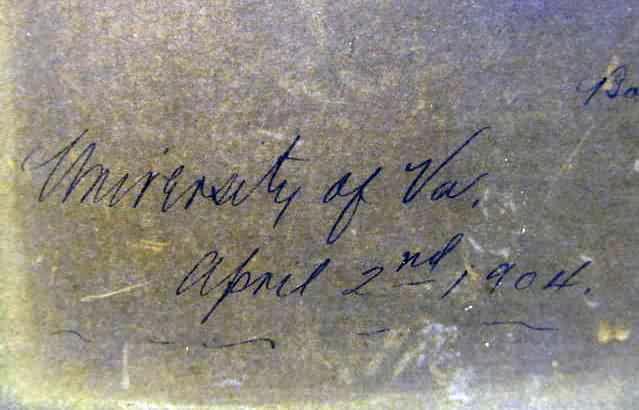 University of Va.
April 2nd, 1904.